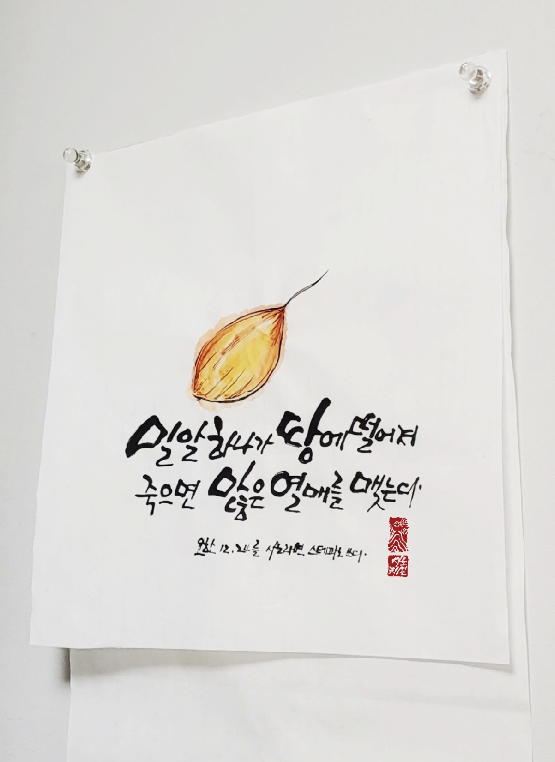 밀알 하나가 땅에 떨어져
죽으면 많은 열매를 맺는다.
요한 12.24를 스테파노 쓰다.